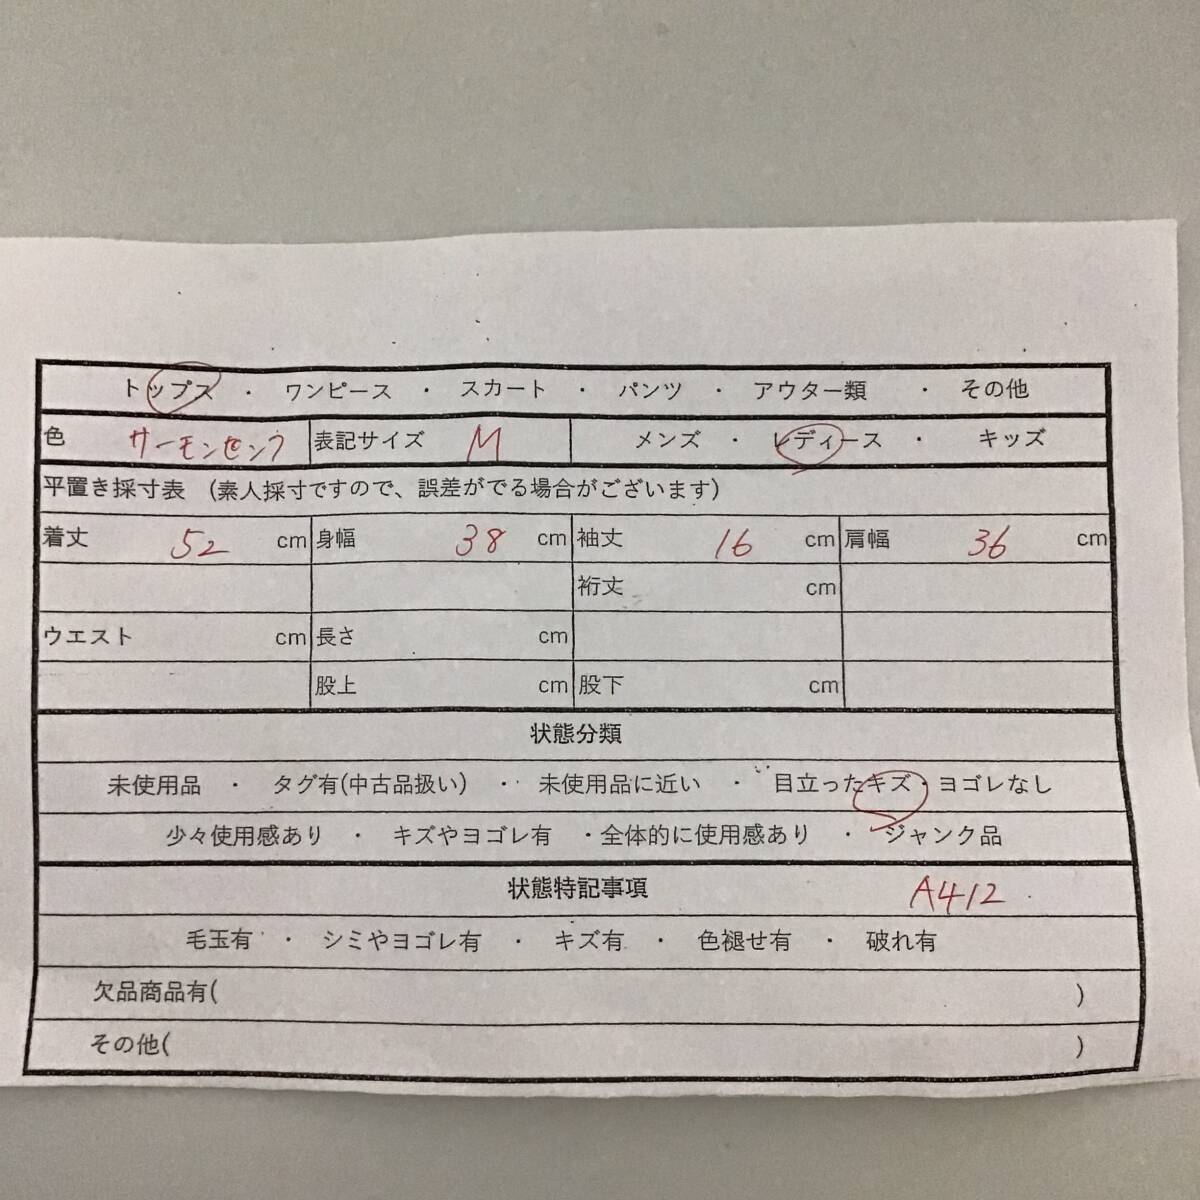 トップス ・ ワンピース ・ スカート ・ パンツ ・ アウター類 ・ その他
色 サーモンピンク 表記サイズ M メンズ ・ レディース ・ キッズ
平置き採寸表 (素人採寸ですので、誤差がでる場合がございます)
着丈 52 cm 身幅 38 cm 袖丈 16 cm 肩幅 36 cm
裄丈 cm
ウエスト cm 長さ cm
股上 cm 股下 cm
状態分類
未使用品 ・ タグ有(中古品扱い) ・ 未使用品に近い ・ 目立ったキズ・ヨゴレなし
少々使用感あり ・ キズやヨゴレ有 ・全体的に使用感あり ・ ジャンク品
状態特記事項 A412
毛玉有 ・ シミやヨゴレ有 ・ キズ有 ・ 色褪せ有 ・ 破れ有
欠品商品有( )
その他( )